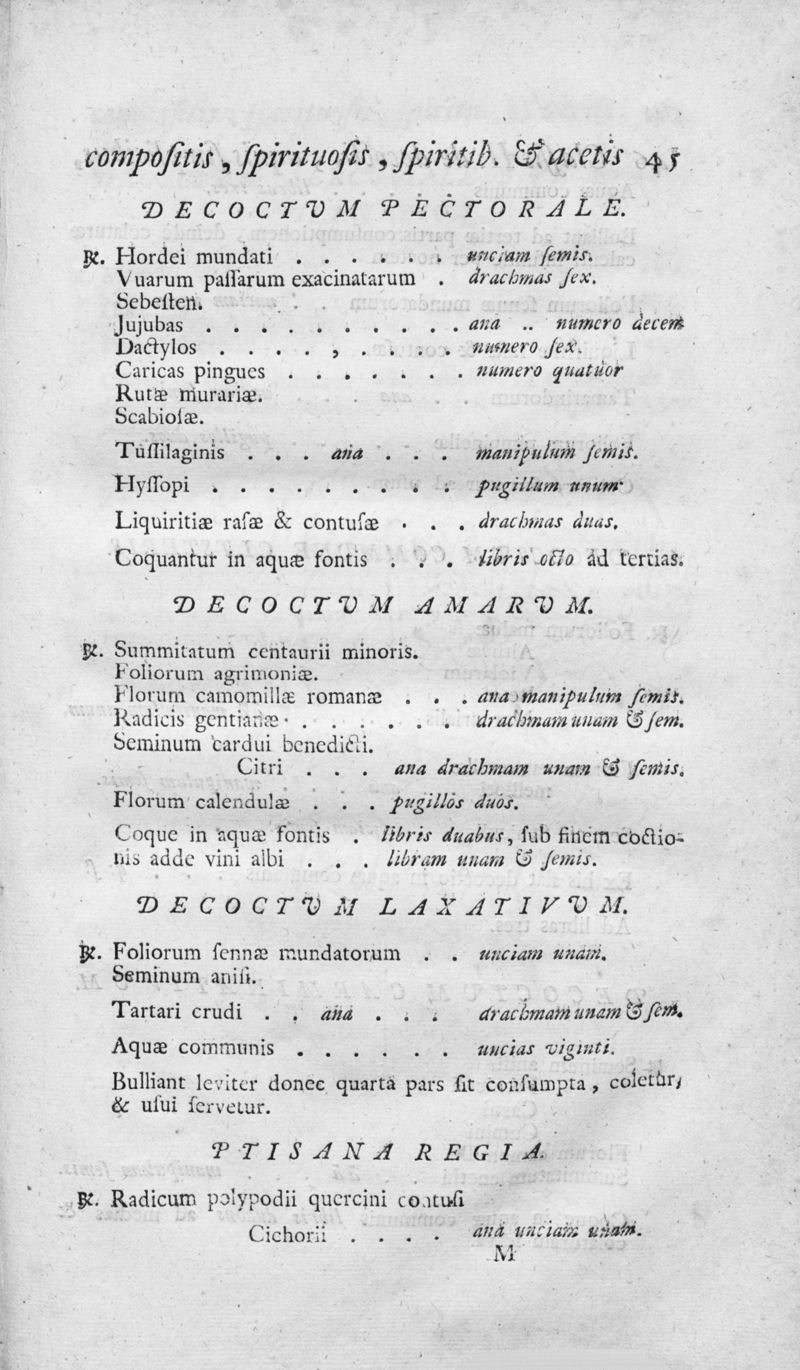 compoſitis, ſpirituoſis, ſpiritib. & acetis 45
DECOCTVM PECTORALE.
℞. Hordei mundati . . . . . . unciam ſemis.
Vuarum paſſarum exacinatarum . drachmas ſex.
Sebeſten.
Jujubas . . . . . . . . . . ana .. numero decem
Dactylos . . . . , . . . . numero ſex.
Caricas pingues . . . . . . . numero quatuor
Rutæ murariæ.
Scabioſæ.
Tuſſilaginis . . . ana . . . manipulum ſemis.
Hyſſopi . . . . . . . . . pugillum unum
Liquiritiæ raſæ & contuſæ . . . drachmas duas.
Coquantur in aquæ fontis . . . libris octo ad tertias.
DECOCTVM AMARVM.
℞. Summitatum centaurii minoris.
Foliorum agrimoniæ.
Florum camomillæ romanæ . . . ana manipulum ſemis.
Radicis gentianæ . . . . . . . drachmam unam & ſem.
Seminum cardui benedicti.
Citri . . . ana drachmam unam & ſemis.
Florum calendulæ . . . pugillos duos.
Coque in aquæ fontis . libris duabus, ſub finem coctio-
nis adde vini albi . . . libram unam & ſemis.
DECOCTVM LAXATIVVM.
℞. Foliorum ſennæ mundatorum . . unciam unam.
Seminum aniſi.
Tartari crudi . . ana . . . drachmam unam & ſem.
Aquæ communis . . . . . . uncias viginti.
Bulliant leviter donec quarta pars ſit conſumpta, coletur,
& uſui ſervetur.
PTISANA REGIA.
℞. Radicum polypodii quercini contuſi
Cichorii . . . . ana unciam unam.
M